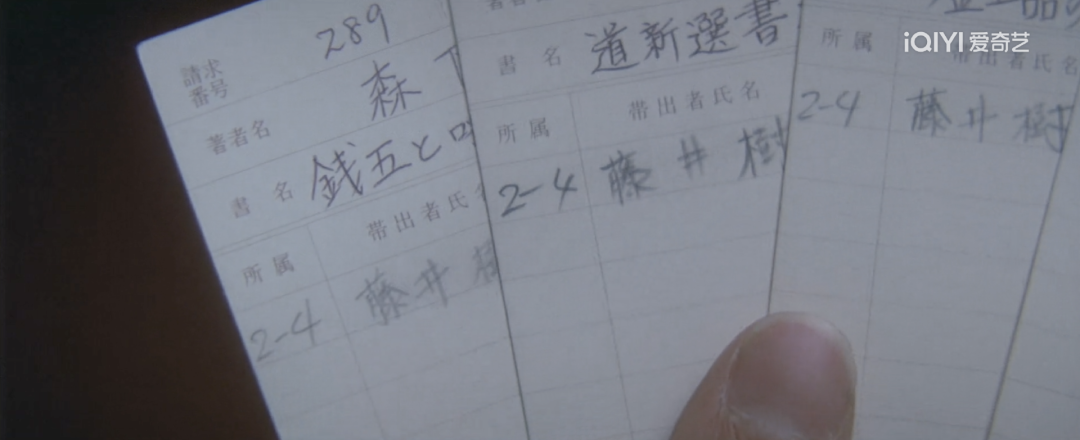 請求
番号
289
著者名
森
書名
銭五と
所属
帯出者氏
2-4
藤井
書名
道新選書
所属
帯出者氏名
2-4
藤井樹
所属
帯出者氏名
2-4
藤井樹
iQIYI 爱奇艺